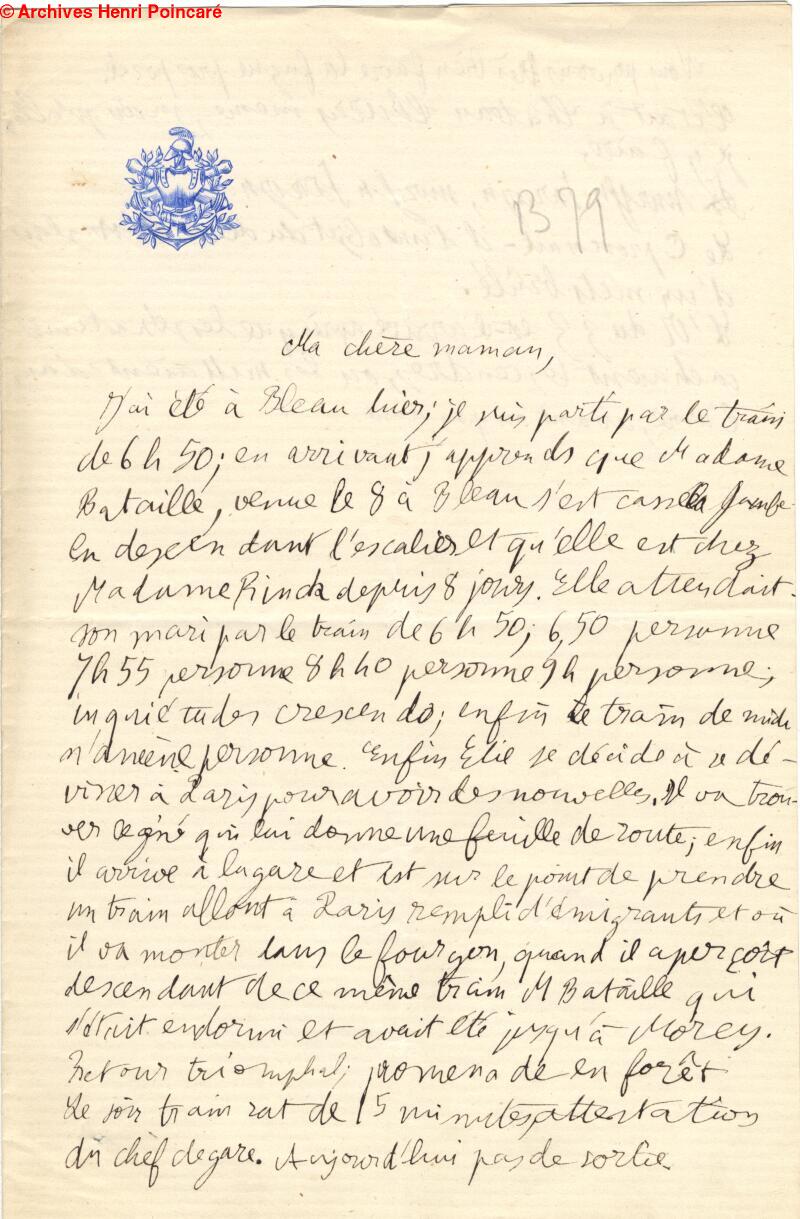 © Archives Henri Poincaré
B 79
Ma chère maman,
J'ai été à Bleau hier; je suis parti par le train
de 6 h 50; en arrivant j'apprends que Madame
Bataille, venue le 8 à Bleau s'est cassé la jambe
en descendant l'escalier et qu'elle est chez
Madame Rinck depuis 8 jours. Elle attendait
son mari par le train de 6 h 50; 6,50 personne
7h 55 personne 8 h 40 personne 9h personne;
inquiétudes crescendo; enfin le train de midi
n'amène personne. Enfin Elie se décide à se dé-
viser à Paris pour avoir des nouvelles. Il va trou-
ver le géné qui lui donne une feuille de route; enfin
il arrive à la gare et est sur le point de prendre
un train allant à Paris rempli d'émigrants et où
il va monter dans le fourgon, quand il aperçoit
descendant de ce même train M Bataille qui
s'était endormi et avait été jusqu'à Morey.
Retour triomphal; promenade en forêt
Le soir train rat de 15 minutes, attestation
du chef de gare. Aujourd'hui pas de sortie.